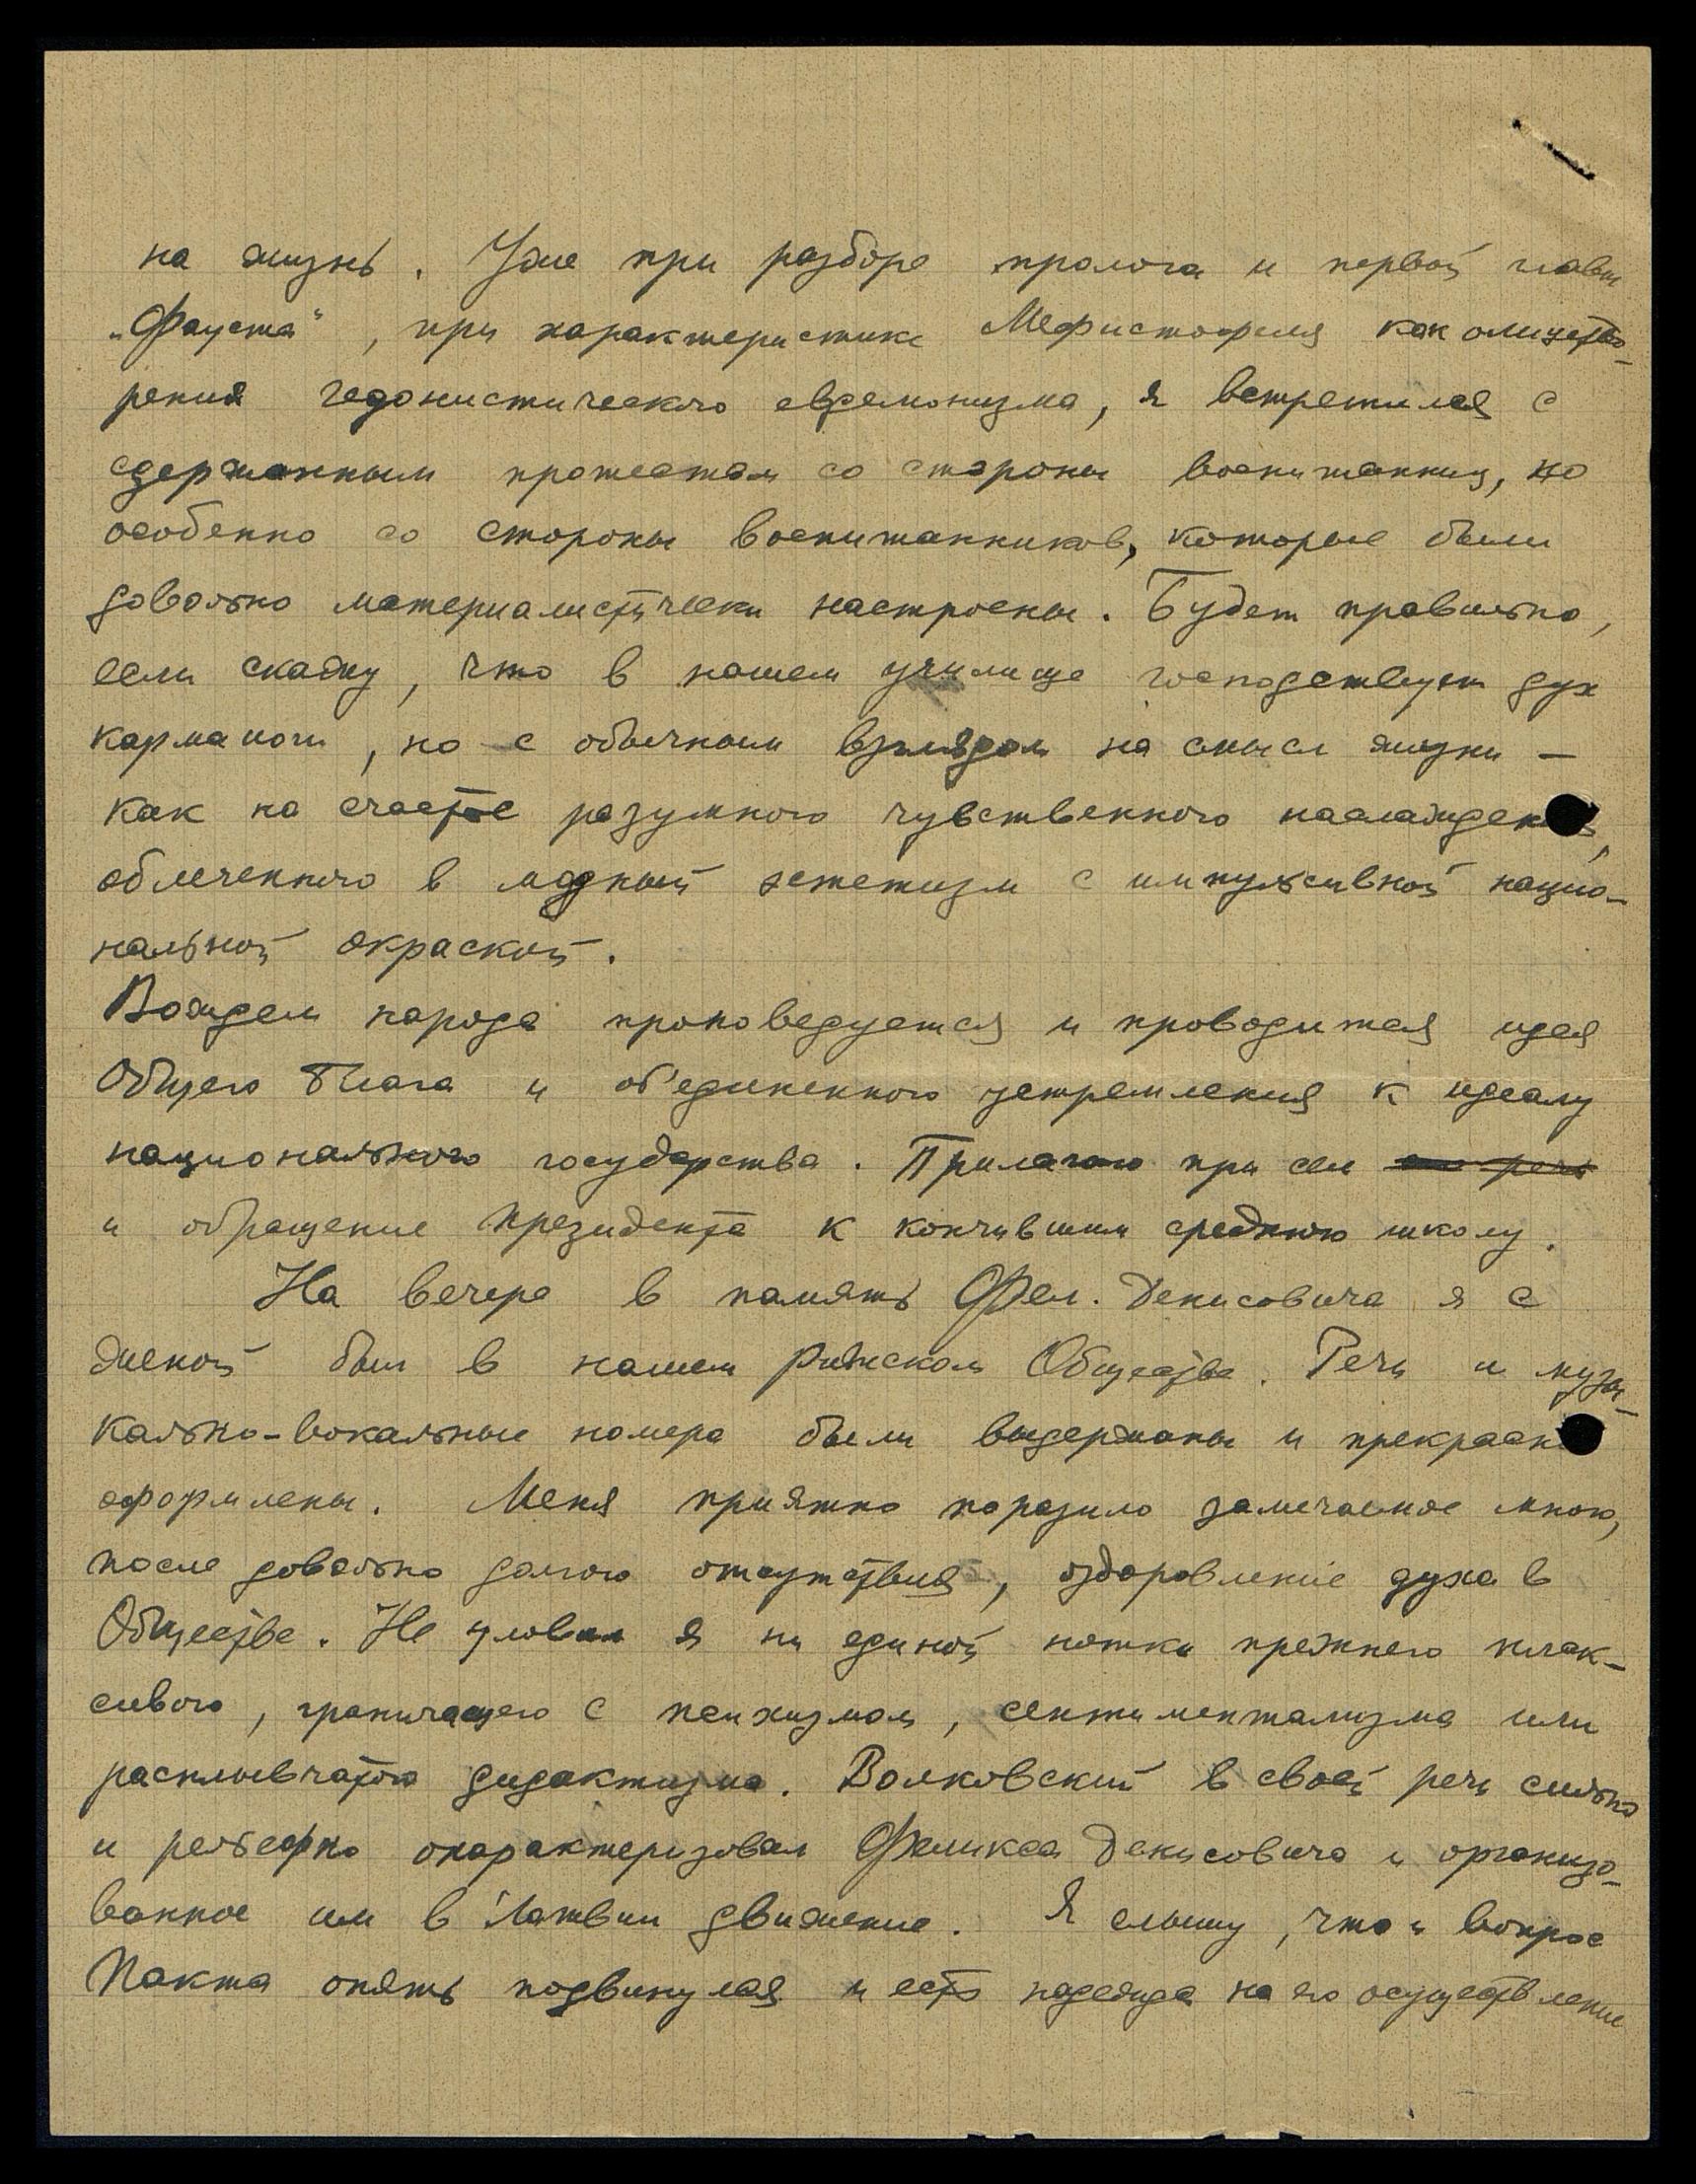 на жизнь. Уже при разборе пролога и первой главы
„Фауста“, при характеристике Мефистофеля как олицетво-
рения гедонистического евдемонизма, я встретился с
сдержанным протестом со стороны воспитанниц, но
особенно со стороны воспитанников, которые были
довольно материалистически настроены. Будет правильно,
если скажу, что в нашем училище господствует дух
гармании, но с обычным взглядом на смысл жизни –
как на счастье разумного чувственного наслаждения,
облеченного в модный эстетизм с импульсивной нацио-
нальной окраской.
Вождем народа проповедуется и проводится идея
Общего Блага и об'единенного устремления к идеалу
национального государства. Прилагаю при сем его речь
и обращение Президента к кончившим среднюю школу.
На вечере в память Фел. Денисовича я с
женой был в нашем Рижском Обществе. Речи и музы-
кально-вокальные номера были выдержаны и прекрасно
оформлены. Меня приятно поразило замечаемое мною,
после довольно долгого отсутствия, оздоровление духа в
Обществе. Не уловил я ни единой нотки прежнего плак-
сивого, граничащего с психизмом, сентиментализма или
расплывчатого дидактизма. Волковский в своей речи сильно
и рельефно охарактеризовал Феликса Денисовича и организо-
ванное им в Латвии движение. Я слышу, что и вопрос
Пакта опять подвинулся и есть надежда на его осуществление